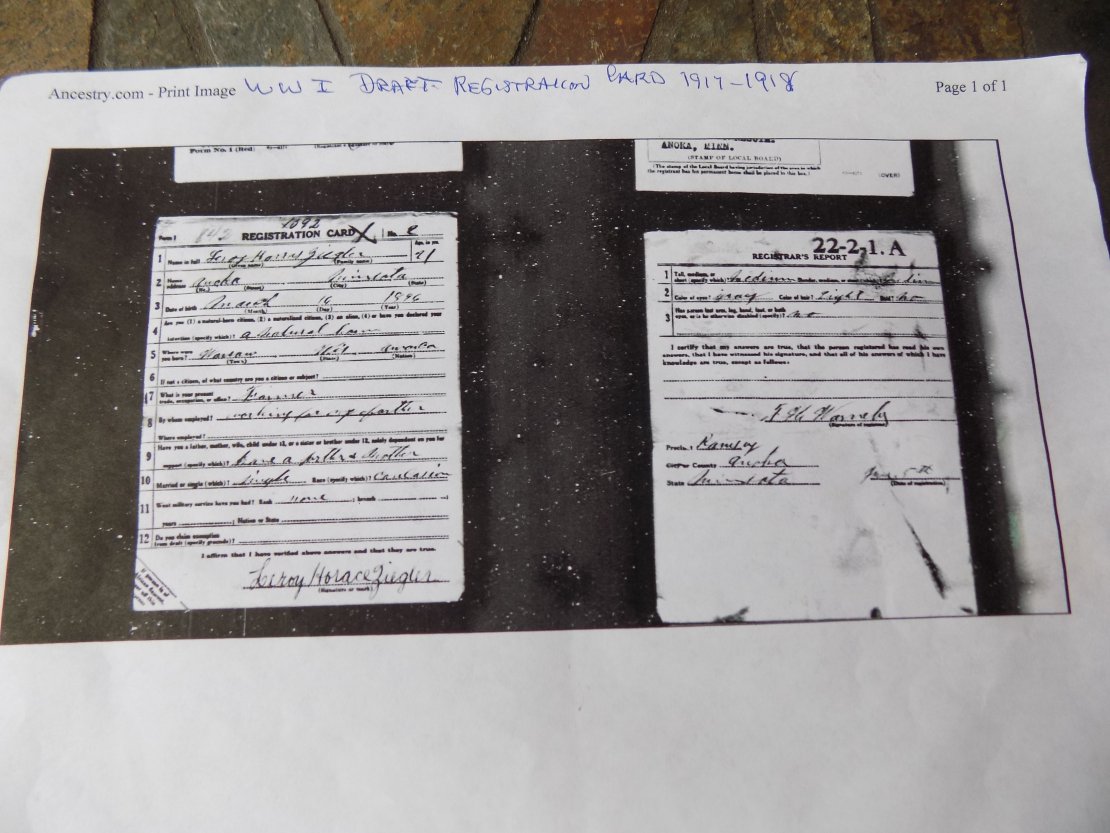 Ancestry.com - Print Image WW I DRAFT REGISTRATION CARD 1917-1918 Page 1 of 1
Form No. 1 (Red)
ANOKA, MINN.
(STAMP OF LOCAL BOARD)
(The stamp of the Local Board having jurisdiction of the area in which
the registrant has his permanent home shall be placed in this box.)
(OVER)
1092
Form 1 REGISTRATION CARD X No. 2
1 Name in full Leroy Horris Ziegler Age, in yrs. 21
(Given name) (Family name)
2 Home address Anoka Minnesota
(No.) (Street) (City) (State)
3 Date of birth March 16 1896
(Month) (Day) (Year)
4 Are you (1) a natural-born citizen, (2) a naturalized citizen, (3) an alien, (4) or have you declared your
intention (specify which)? a natural born
5 Where were you born? Warsaw America
(Town) (State) (Nation)
6 If not a citizen, of what country are you a citizen or subject?
7 What is your present trade, occupation, or office? Farmer
8 By whom employed? working for my father
Where employed?
9 Have you a father, mother, wife, child under 12, or a sister or brother under 12, solely dependent on you for
support (specify which)? have a father & mother
10 Married or single (which)? Single Race (specify which)? Caucasian
11 What military service have you had? Rank none ; branch
years ; Nation or State
12 Do you claim exemption from draft (specify grounds)?
I affirm that I have verified above answers and that they are true.
Leroy Horace Ziegler
(Signature or mark)
22-2-1. A
REGISTRAR'S REPORT
1 Tall, medium, or short (specify which)? Medium Slender, medium, or stout (which)? Medium
2 Color of eyes? Gray Color of hair? Light Bald? No
3 Has person lost arm, leg, hand, foot, or both
eyes, or is he otherwise disabled (specify)? No
I certify that my answers are true, that the person registered has read his own
answers, that I have witnessed his signature, and that all of his answers of which I have
knowledge are true, except as follows:
(Signature of registrar)
Precinct Ramsey
City or County Anoka
State Minnesota
(Date of registration)